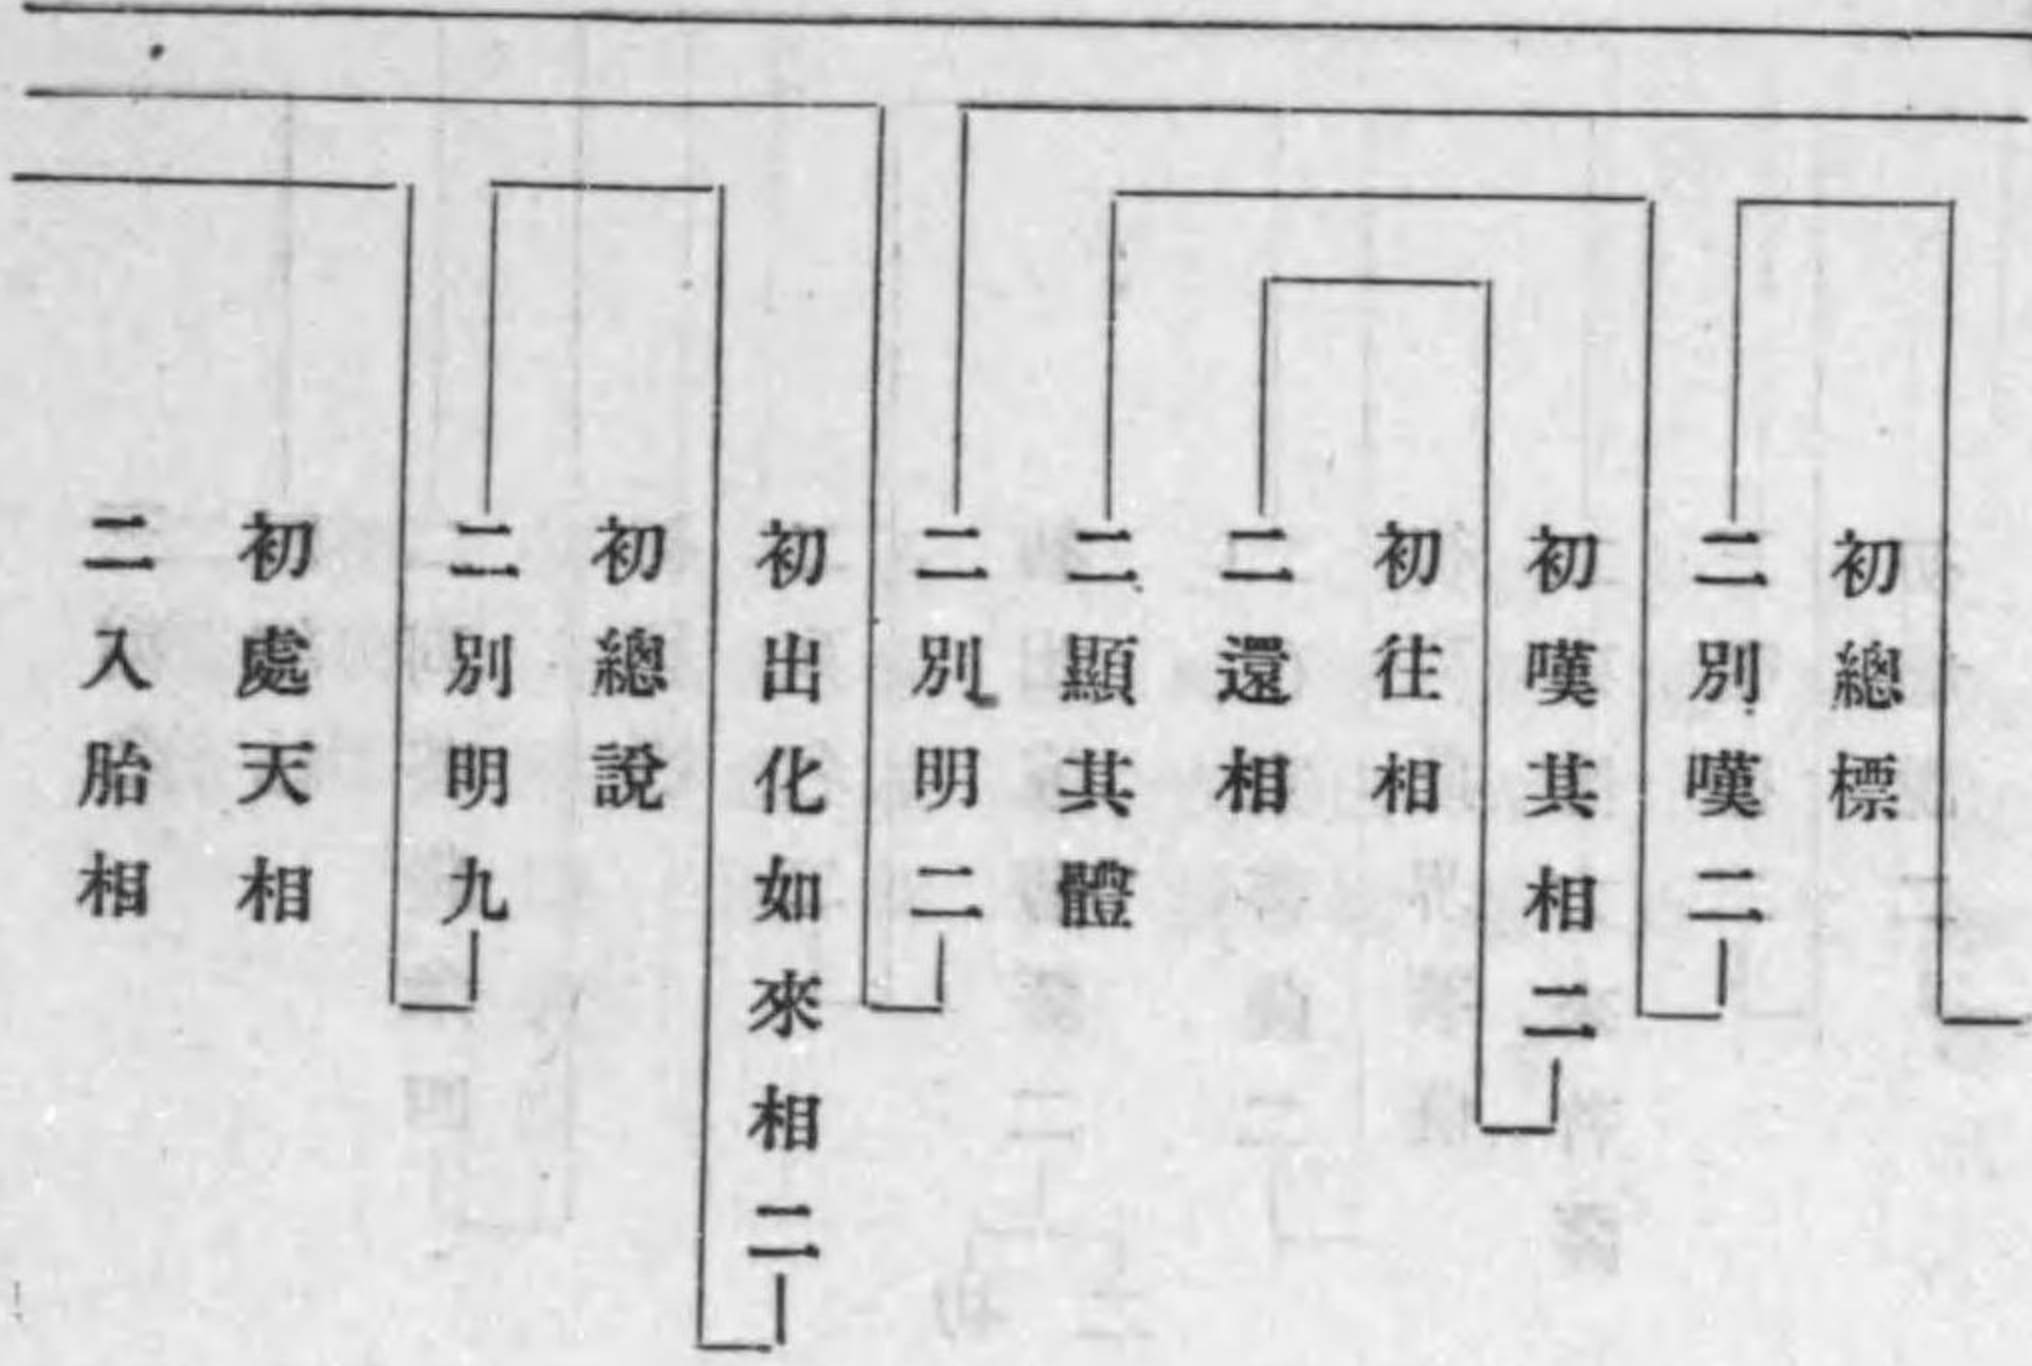 初總標
二別嘆二
初嘆其相二
初往相
二還相
二顯其體
二別明二
初出化如來相二
初總說
二別明九
初處天相
二入胎相